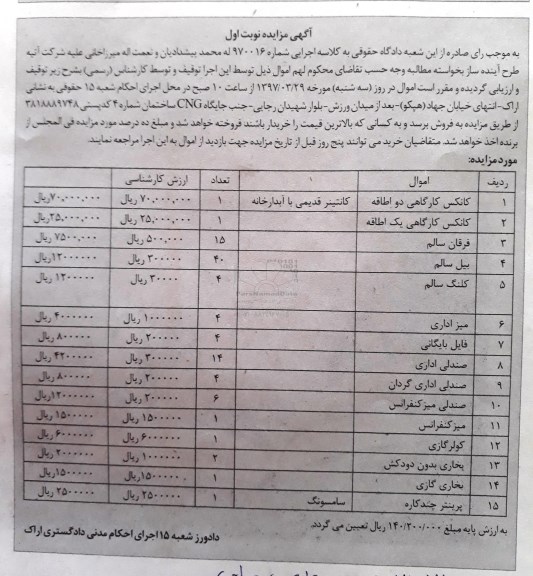 آگهی مزایده نوبت اول
به موجب رای صادره از این شعبه دادگاه حقوقی به کلاسه اجرایی شماره ۹۷۰۰۱۶ له محمد پیشدادیان و نعمت اله میرزاخانی علیه شرکت آتیه
طرح آینده ساز بخواسته مطالبه وجه حسب تقاضای محکوم لهم اموال ذیل توسط این اجرا توقیف و توسط کارشناس (رسمی) بشرح زیر توقیف
و ارزیابی گردیده و مقرر است اموال در روز (سه شنبه) مورخه ۱۳۹۷/۰۳/۲۹ از ساعت ۱۰ صبح در محل اجرای احکام شعبه ۱۵ حقوقی به نشانی
اراک-انتهای خیابان جهاد (هپکو)-بعد از میدان ورزش-بلوار شهیدان رجایی-جنب جایگاه CNG ساختمان شماره ۴ کدپستی ۳۸۱۸۸۸۹۷۴۸
از طریق مزایده به فروش برسد و به کسانی که بالاترین قیمت را خریدار باشند فروخته خواهد شد و مبلغ ده درصد مورد مزایده فی المجلس از
برنده اخذ خواهد شد. متقاضیان خرید می توانند پنج روز قبل از تاریخ مزایده جهت بازدید از اموال به این اجرا مراجعه نمایند.
مورد مزایده:
ردیف اموال تعداد ارزش کارشناسی
۱ کانکس کارگاهی دو اطاقه کانتینر قدیمی با آبدارخانه ۱ ۷۰,۰۰۰,۰۰۰ ریال ۷۰,۰۰۰,۰۰۰ریال
۲ کانکس کارگاهی یک اطاقه ۱ ۲۵,۰۰۰,۰۰۰ ریال ۲۵,۰۰۰,۰۰۰ریال
۳ فرقان سالم ۱۵ ۵۰۰,۰۰۰ ریال ۷۵۰۰,۰۰۰ ریال
۴ بیل سالم ۴۰ ۳۰۰,۰۰۰ ریال ۱۲۰۰۰,۰۰۰ریال
۵ کلنگ سالم ۴ ۳۰۰۰۰ ریال ۱۲۰۰۰۰۰ ریال
۶ میز اداری ۴ ۱۰۰۰۰۰۰ ریال ۴۰۰۰۰۰۰ ریال
۷ فایل بایگانی ۴ ۲۰۰۰۰۰ ریال ۸۰۰۰۰۰ ریال
۸ صندلی اداری ۱۴ ۳۰۰۰۰۰ ریال ۴۲۰۰۰۰۰ ریال
۹ صندلی اداری گردان ۴ ۲۰۰۰۰۰ ریال ۸۰۰۰۰۰ ریال
۱۰ صندلی میز کنفرانس ۶ ۲۰۰۰۰۰ ریال ۱۲۰۰۰۰۰ریال
۱۱ میز کنفرانس ۱ ۱۵۰۰۰۰۰ ریال ۱۵۰۰۰۰۰ ریال
۱۲ کولر گازی ۱ ۶۰۰۰۰۰۰ ریال ۶۰۰۰۰۰۰ ریال
۱۳ بخاری بدون دودکش ۲ ۱۰۰۰۰۰۰ ریال ۲۰۰۰۰۰۰ ریال
۱۴ بخاری گازی ۱ ۱۵۰۰۰۰۰ریال ۱۵۰۰۰۰۰ریال
۱۵ پرینتر چندکاره سامسونگ ۱ ۲۵۰۰۰۰۰ ریال ۲۵۰۰۰۰۰ ریال
به ارزش پایه مبلغ ۱۴۰/۲۰۰/۰۰۰ ریال تعیین می گردد.
دادورز شعبه ۱۵ اجرای احکام مدنی دادگستری اراک